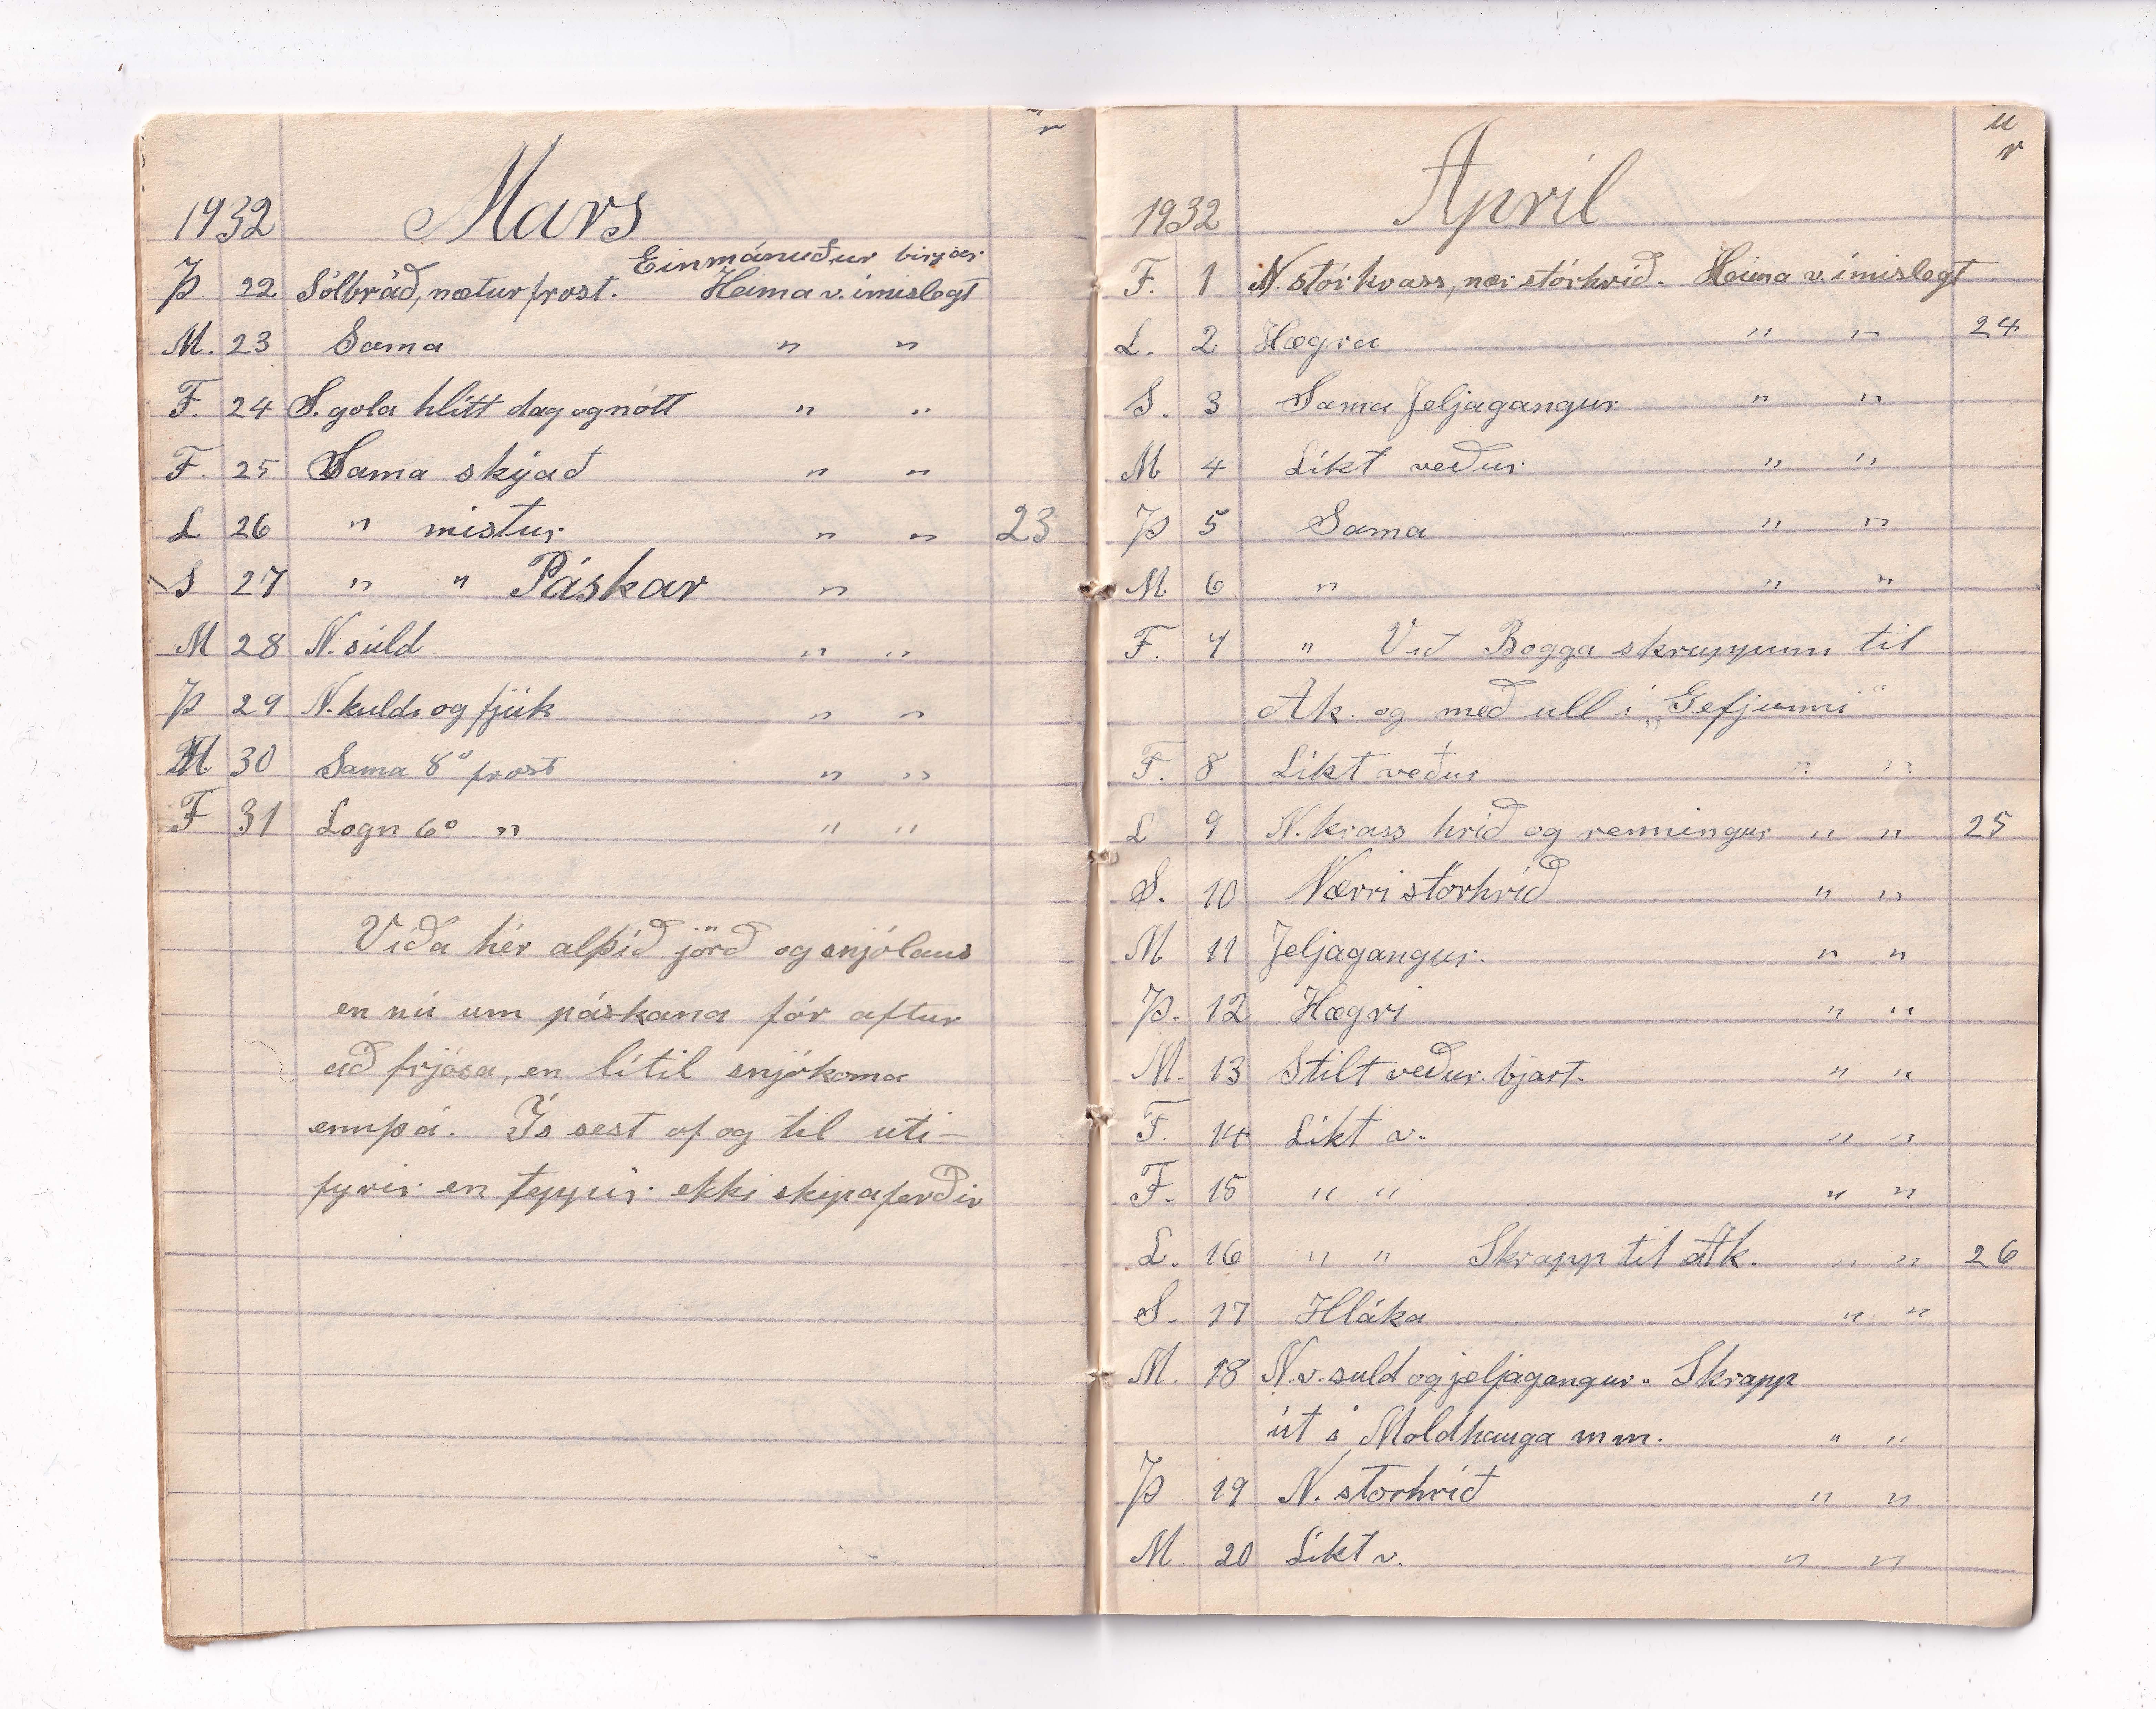 1932 Mars
Einmánuður birjar
Þ 22 Sólbráð, næturfrost. Heima v. ímislegt
M. 23 Sama " "
F. 24 S. gola hlítt dag og nótt " "
F. 25 Sama skýað " "
L 26 " mistur " " 23
S 27 " " Páskar "
M 28 N. súld " "
Þ 29 N. kuldi og fjúk " "
M. 30 Sama 8° frost " "
F 31 Logn 6° " " "
Víða hér alþíð jörð og snjólaus
en nú um páskana fór aftur
að frjósa, en lítil snjókoma
ennþá. Ís sest af og til úti-
fyrir en teppir ekki skipaferðir
u
v
1932 Apríl
F. 1 N. stórkvass, nær stórhríð. Heima v. ímislegt
L. 2 Hægra " " 24
S. 3 Sama Jeljagangur " "
M 4 Líkt veður " "
Þ 5 Sama " "
M 6 " " "
F. 7 " Við Bogga skruppum til
Ak. og með ull í „Gefjunni“
F. 8 Líkt veður " "
L 9 N. kvass hríð og renningur " " 25
S. 10 Nærri stórhríð " "
M 11 Jeljagangur. " "
Þ. 12 Hægri " "
M. 13 Stilt veður. bjart. " "
F. 14 Líkt v. " "
F. 15 " " " "
L. 16 " " Skrapp til Ak. " " 26
S. 17 Hláka " "
M. 18 N.v. suld og jeljagangur. Skrapp
út í Moldhauga m m. " "
Þ 19 N. stórhríð " "
M 20 Líkt v. " "